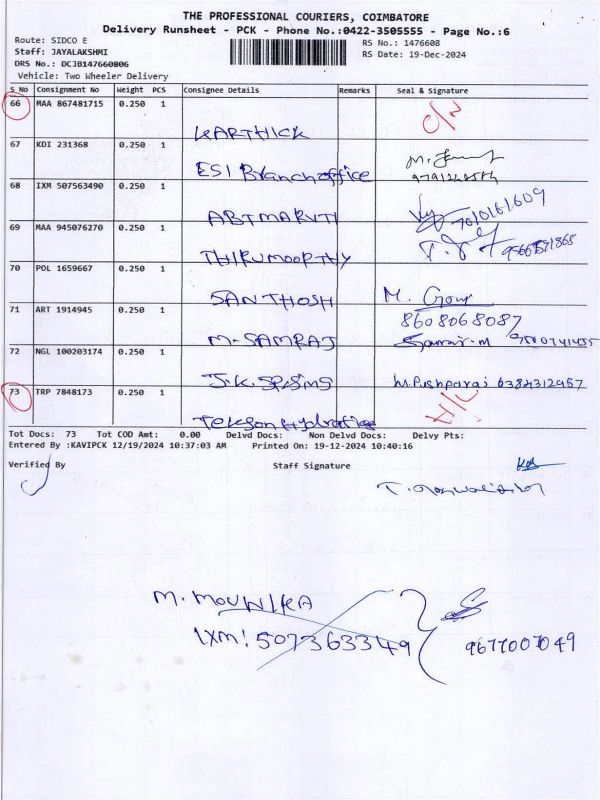 THE PROFESSIONAL COURIERS, COIMBATORE
Delivery Runsheet - PCK - Phone No.:0422-3505555 - Page No.:6
Route: SIDCO E RS No.: 1476608
Staff: JAYALAKSHMI RS Date: 19-Dec-2024
DRS No.: DCJB147660806
Vehicle: Two Wheeler Delivery
S No Consignment No Weight PCS Consignee Details Remarks Seal & Signature
66 MAA 867481715 0.250 1
KARTHICK
67 KDI 231368 0.250 1
ESI Branch office
68 IXM 507563490 0.250 1
ABT MARUTI 7010161609
69 MAA 945076270 0.250 1
THIRUMOORTHY
70 POL 1659667 0.250 1
SANTHOSH M. Gour
71 ART 1914945 0.250 1 8608068087
M. SAMRAJ
72 NGL 100203174 0.250 1
J.K. SPRSing M. Pushparaj 6384312957
73 TRP 7848173 0.250 1
Tekson Hydratics
Tot Docs: 73 Tot COD Amt: 0.00 Delvd Docs: Non Delvd Docs: Delvy Pts:
Entered By :KAVIPCK 12/19/2024 10:37:03 AM Printed On: 19-12-2024 10:40:16
Verified By Staff Signature
M. MOUNIKA
IXM: 507363349 9677007049